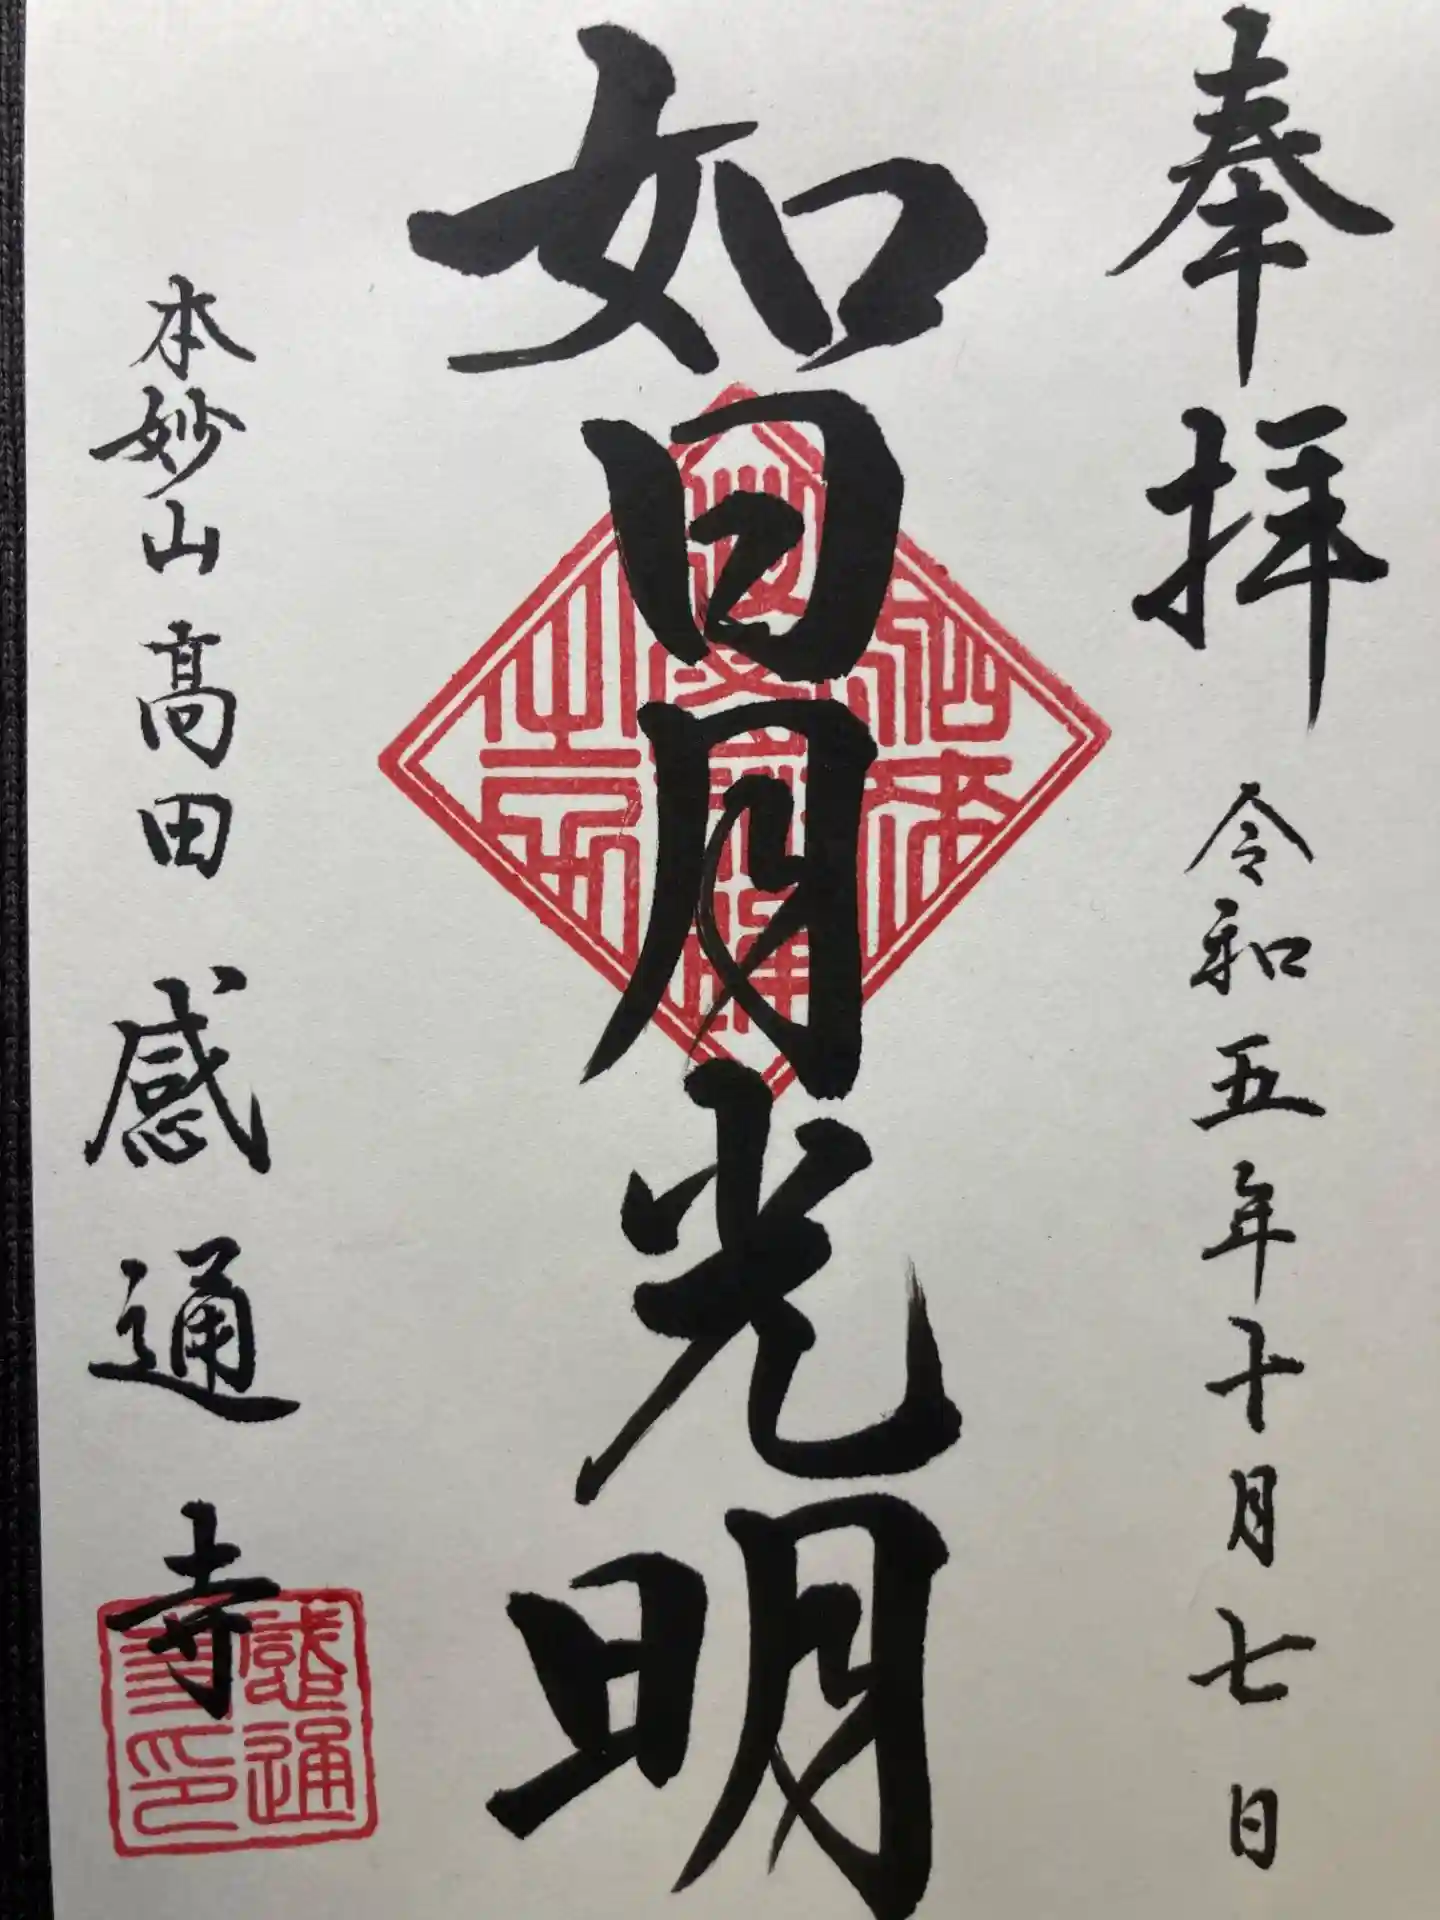 奉拝 令和五年十月七日
如日月光明
本妙山高田感通寺
感通
寺印